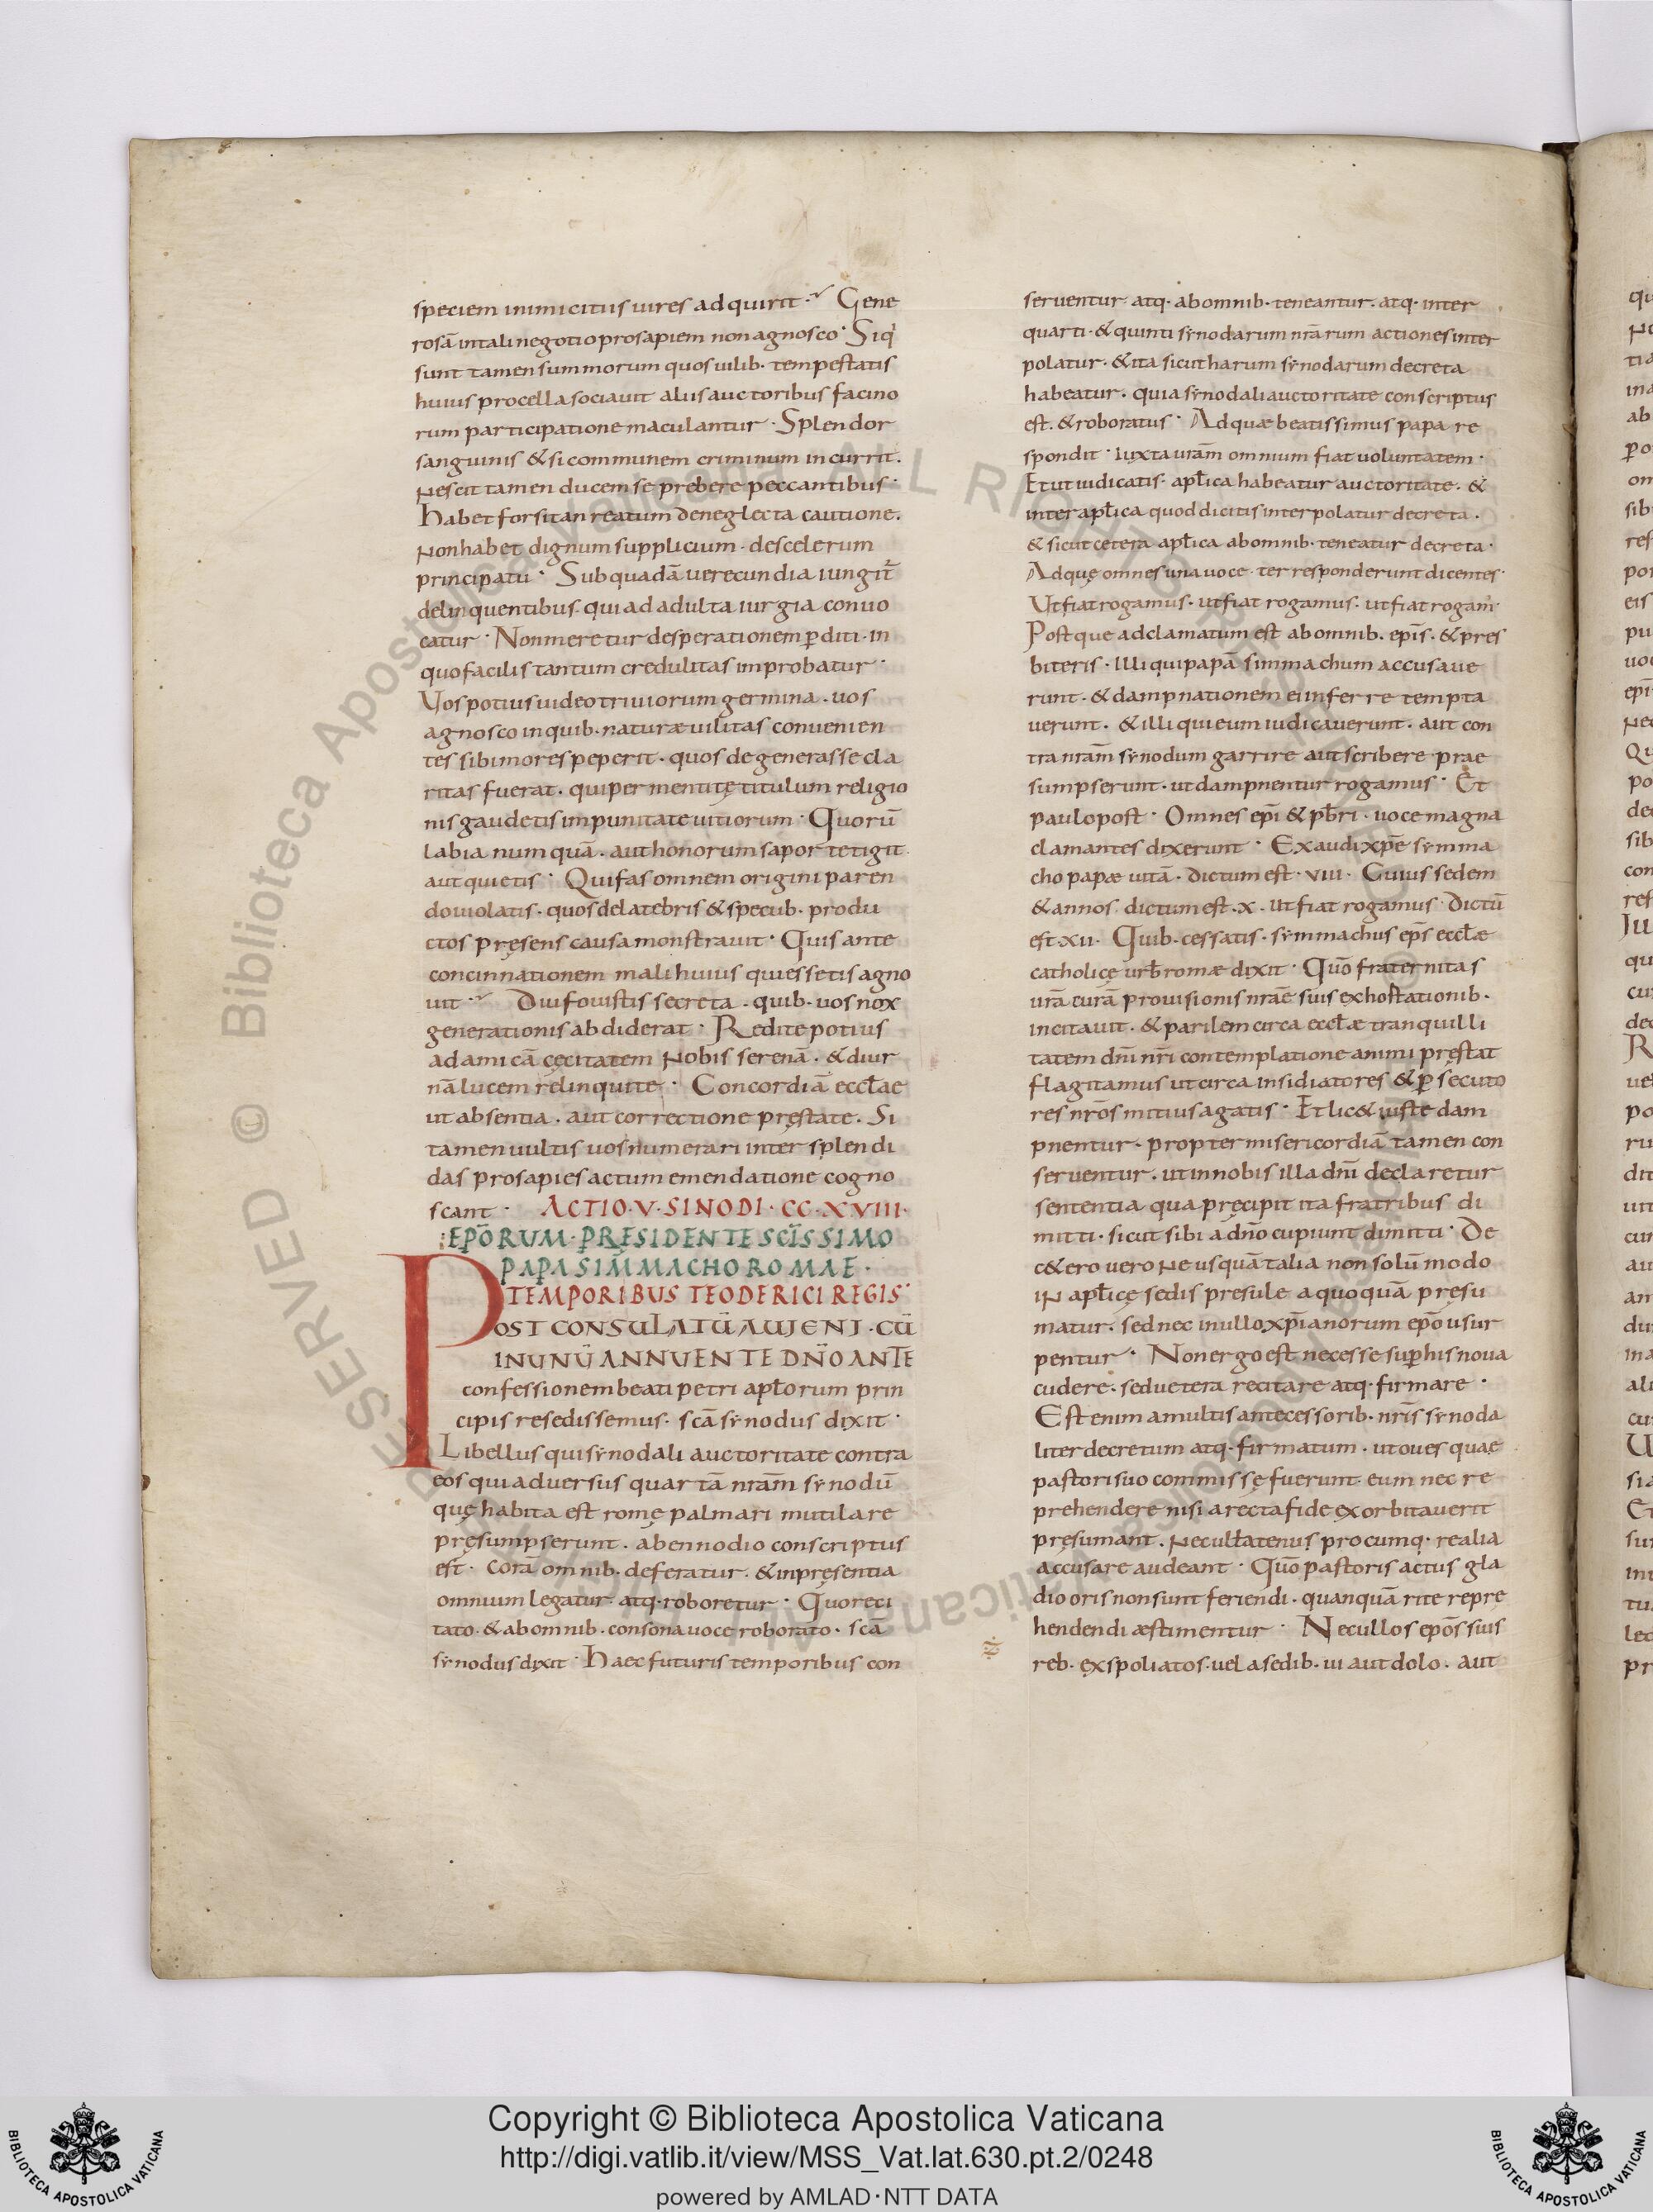 speciem inimicitiis uires adquirit. Gene
rosā intali negotio prosapiem non agnosco. Siq
sunt tamen summorum quos uilib. tempestatis
huius procella sociauit aliis auctoribus facino
rum participatione maculantur. Splendor
sanguinis & si communem criminum incurrit.
Nescit tamen ducem se prebere peccantibus.
Habet forsitan reatum de neglecta cautione.
Non habet dignum supplicium. de scelerum
principatu. Sub quadā uerecundia iungit
delinquentibus. qui ad adulta iurgia conuo
catur. Non meretur desperationem pditi. in
quo facilis tantum credulitas improbatur.
Vos potius uideo triuiorum germina. uos
agnosco in quib. naturæ uilitas conuenien
tes sibi mores peperit. quos degenerasse cla
ritas fuerat. qui per mentitę titulum religio
nis gaudetis impunitate uitiorum. Quorū
labia numquā. aut honorum sapor tetigit.
aut quietis. Qui fas omnem origini paren
do uiolatis. quos de latebris & specub. produ
ctos pręsens causa monstrauit. Quis ante
concinnationem mali huius qui essetis agno
uit. Diu fouistis secreta. quib. uos nox
generationis abdiderat. Redite potius
ad amicā cęcitatem Nobis serenā. & diur
nā lucem relinquite. Concordiā eccłae
ut absentia. aut correctione pręstate. Si
tamen uultis uos numerari inter splendi
das prosapies actum emendatione cogno
scant. ACTIO. V. SINODI. CC. XVIII.
EPŌRUM. PRESIDENTE SCĪSSIMO
PAPA SIM̄MACHO ROMAE.
TEMPORIBUS TEODERICI REGIS
POST CONSULATŪ AUIENI. CŪ
IN UNŪ ANNUENTE DN̄O ANTE
confessionem beati petri apłorum prin
cipis resedissemus. scā synodus dixit.
Libellus qui synodali auctoritate contra
eos qui aduersus quartā nrām synodū
quę habita est romę palmari mutilare
pręsumpserunt. ab ennodio conscriptus
est. corā omnib. deferatur. & in pręsentia
omnium legatur. atq. roboretur. Quo reci
tato. & ab omnib. consona uoce roborato. scā
synodus dixit. Haec futuris temporibus con
seruentur. atq. ab omnib. teneantur. atq. inter
quarti. & quinti synodarum nrārum actiones inter
polatur. & ita sicut harum synodarum decreta
habeatur. quia synodali auctoritate conscriptus
est. & roboratus. Ad quæ beatissimus papa re
spondit. Iuxta urām omnium fiat uoluntatem.
Et ut iudicatis. apłica habeatur auctoritate. &
inter apłica quod dicitis interpolatur decreta.
& sicut cetera apłica ab omnib. teneatur decreta.
Ad quę omnes una uoce. ter responderunt dicentes.
Ut fiat rogamus. ut fiat rogamus. ut fiat rogam
Postque adclamatum est ab omnib. epīs. & pres
biteris. Illi qui papā simmachum accusaue
runt. & dampnationem ei inferre tempta
uerunt. & illi qui eum iudicauerunt. aut con
tra nrām synodum garrire aut scribere prae
sumpserunt. ut dampnentur rogamus. Et
paulo post. Omnes epī & pb̄ri. uoce magna
clamantes dixerunt. Exaudi xp̄e symma
cho papæ uitā. dictum est. viii. Cuius sedem
& annos. dictum est. x. Ut fiat rogamus. Dictū
est. xii. Quib. cessatis. symmachus ep̄s eccłæ
catholicę urb romæ dixit. Quō fraternitas
urā curā prouisionis nrāe suis exhostationib.
incitauit. & parilem circa eccłæ tranquilli
tatem dnī nrī contemplatione animi pręstat
flagitamus ut circa insidiatores & psecuto
res nrōs mitius agatis. Et lic& iuste dam
pnentur. propter misericordiā tamen con
seruentur. ut in nobis illa dnī declaretur
sententia qua pręcipit ita fratribus di
mitti. sicut sibi a dn̄o cupiunt dimitti. De
c&ero uero Ne usquā talia non solū modo
in apłicę sedis presule a quoquā pręsu
matur. sed nec in ullo xp̄ianorum epō usur
pentur. Non ergo est necesse sup his noua
cudere. sed uetera recitare atq. firmare.
Est enim a multis antecessorib. nrīs synoda
liter decretum atq. firmatum. ut oues quae
pastori suo commissę fuerunt eum nec re
prehendere nisi a recta fide exorbitauerit
pręsumant. Nec ullatenus pro cumq. re alia
accusare audeant. Quō pastoris actus gla
dio oris non sunt feriendi. quanquā rite repre
hendendi æstimentur. Nec ullos epōs suis
reb. exspoliatos. uel a sedib. ui aut dolo. aut
Copyright © Biblioteca Apostolica Vaticana
http://digi.vatlib.it/view/MSS_Vat.lat.630.pt.2/0248
powered by AMLAD·NTT DATA
BIBLIOTECA APOSTOLICA VATICANA
BIBLIOTECA APOSTOLICA VATICANA